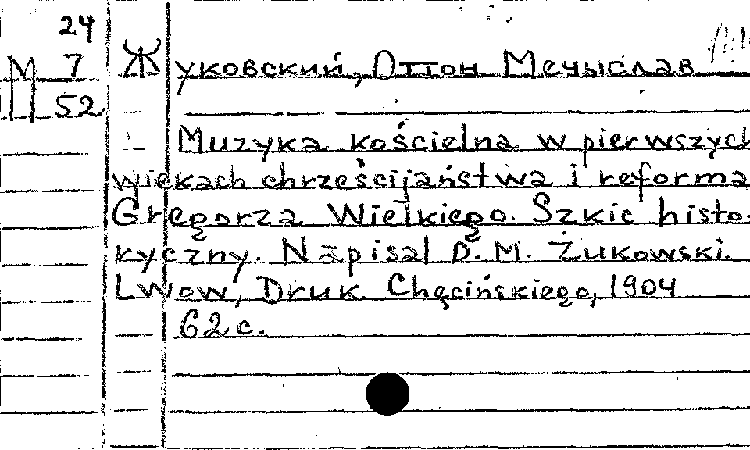 24
M 7
II 52
Жуковский, Оттон Мечыслав
Muzyka kościelna w pierwszych
wiekach chrześcijaństwa i reforma
Gregorza Wielkiego. Szkic histo-
ryczny. Napisał D. M. Żukowski.
Lwow, Druk Chęcińskiego, 1904
62 c.